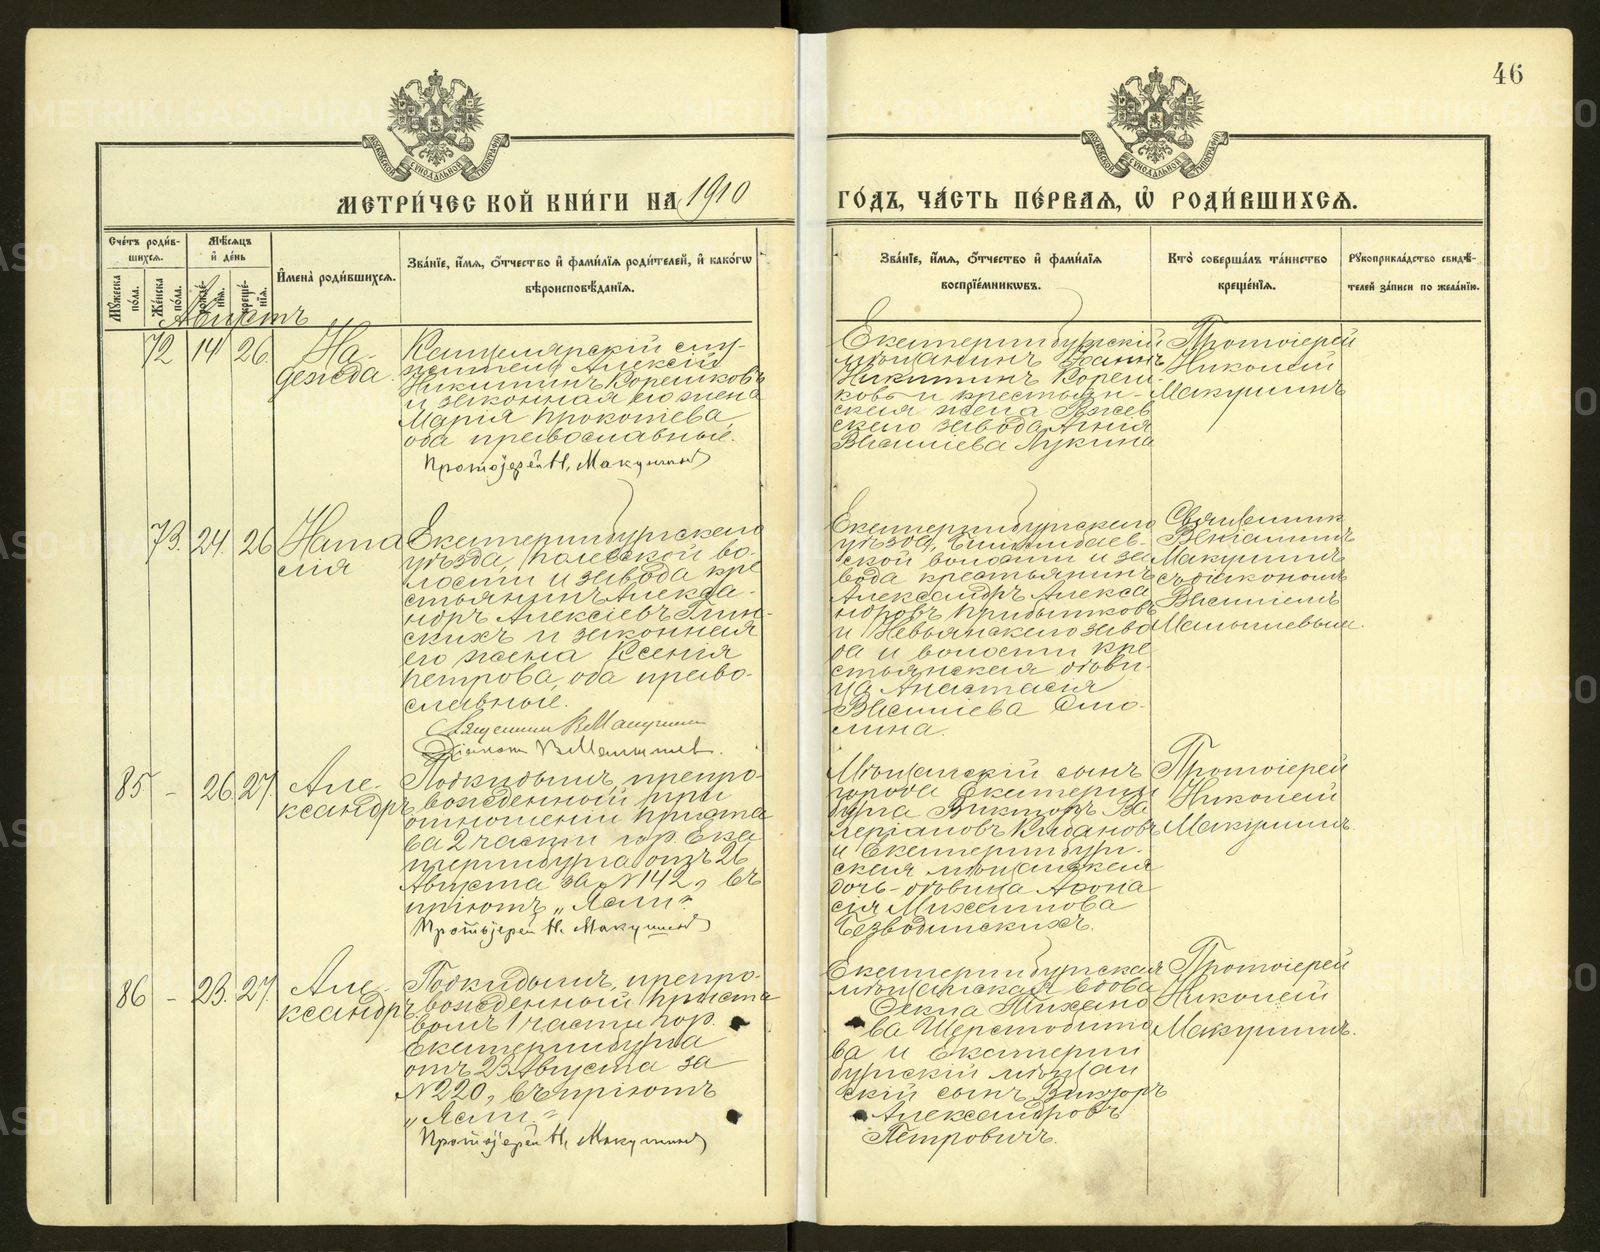 46
МОСКОВСКОЙ СѴНОДАЛЬНОЙ ТИПОГРАФІИ
МОСКОВСКОЙ СѴНОДАЛЬНОЙ ТИПОГРАФІИ
МЕТРИ́ЧЕСКОЙ КНИ́ГИ НА 1910
ГО́ДЪ, ЧА́СТЬ ПЕ́РВАЯ, Ѡ҆ РОДИ́ВШИХСЯ.
Сче́тъ роди́в-
шихся.
Мꙋ́жеска по́ла.
Же́нска по́ла.
Мѣ́сяцъ
и҆ де́нь
рожде́-
нїя.
креще́-
нїя.
И҆мена̀ роди́вшихся.
Зва́нїе, и҆́мя, ѻ҆́тчество и҆ фами́лїя роди́телей, и҆ како́гѡ
вѣроисповѣ́данїя.
Зва́нїе, и҆́мя, ѻ҆́тчество и҆ фами́лїя
воспрїе́мникѡвъ.
Кто̀ соверша́лъ та́инство
креще́нїя.
Рꙋкоприкла́дство свидѣ́-
телей за́писи по жела́нїю.
Августъ
72 14 26
На-
дежда
Канцелярскій слу-
житель Алексій
Никитинъ Корешковъ
и законная его жена
Марія Прокопіева,
оба православные.
Протоіерей Н. Макушинъ
Екатеринбургскій
мѣщанинъ Іоаннъ
Никитинъ Кореш-
ковъ и крестьян-
ская жена
скаго завода Анна
Василіева Лукина
Протоіерей
Николай
Макушинъ
73. 24. 26
Ната
лія
Екатеринбургскаго
уѣзда, Полевской во-
лости и завода кре
стьянинъ Алекса-
ндръ Алексіевъ Глин-
скихъ и законная
его жена Ксенія
Петрова, оба право-
славные.
Священникъ В. Макушинъ
Діаконъ В. Малышев.
Екатеринбургскаго
уѣзда, Билимбаев-
ской волости и за
вода крестьянинъ
Александръ Алекса
ндровъ Прибытковъ
и Невьянскаго заво
да и волости кре
стьянская дѣви-
ца Анастасія
Василіева Смо-
лина.
Священник
Веніаминъ
Макушинъ
съ діакономъ
Василіемъ
Малышевым.
85 - 26. 27.
Але-
ксандръ
Подкидышъ, препро-
вожденный при
отношеніи Приста
ва 2 части гор. Ека
теринбурга отъ 26
Августа за №142, въ
пріютъ „Ясли“
Протоіерей Н. Макушинъ
Мѣщанскій сынъ
города Екатерин
бурга Викторъ Ва
леріановъ Кабановъ
и Екатеринбург-
ская мѣщанская
дочь-дѣвица Афона
сія Михаилова
Безводинскихъ.
Протоіерей
Николай
Макушинъ.
86 - 23. 27.
Але-
ксандръ
Подкидышъ, препро-
вожденный Приста
вомъ 1 части гор.
Екатеринбурга
отъ 23 Августа за
№220, въ пріютъ
„Ясли“
Протоіерей Н. Макушинъ
Екатеринбургская
мѣщанская вдова
Ѳекла Тихано
ва Шерстобито
ва и Екатерин
бургскій мѣщан
скій сынъ Викторъ
Александровъ
Петровичъ.
Протоіерей
Николай
Макушинъ.